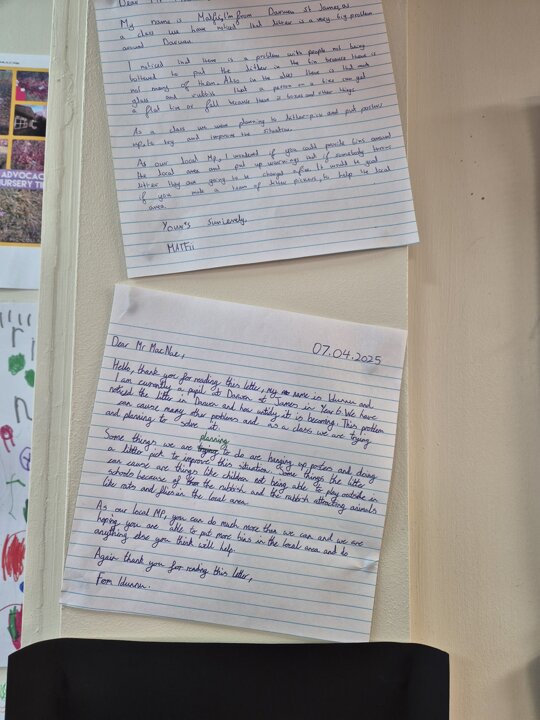 My name is Matei, I'm from Darwen St James, as
a class we have noticed that litter is a very big problem
around Darwen
I noticed ind there is a problem with people not being
bothered to put the litter in the bin because there is
not many of them. Also in the there is that much
glass and rubish that a person on a bike can get
a flat tire or fall because there is boxes and other things.
As a class we were planning to litter-pick and put posters
up to try and improve the situation.
As our local Mp, I wondered if you could provide bins around
the local area and put up warnings that if somebody throws
litter they are going to be charged a fine. It would be good
if you made a team of litter pickers, to help the local
area.
Your's sincerely,
MATEII
ADVOCAC
NURSERY T
07.04.2025
Dear Mr MacNae,
Hello, thank you for reading this letter, my name is Idunnu and
I am currently a pupil at Darwen St James in Year 6. We have
noticed the litter in Darwen and how untidy it is becoming. This problem
can cause many other problems and as a class we are trying
and planning to solve it.
Some things we are planning to do are hanging up posters and doing
a litter pick to improve this situation. Some things the litter
can cause are things like children not being able to play outside in
schools because of the rubbish and the rubbish attracting animals
like rats and flies in the local area.
As our local MP, you can do much more than we can and we are
hoping you are able to put more bins in the local area and do
anything else you think will help.
Again thank you for reading this letter,
From Idunnu.